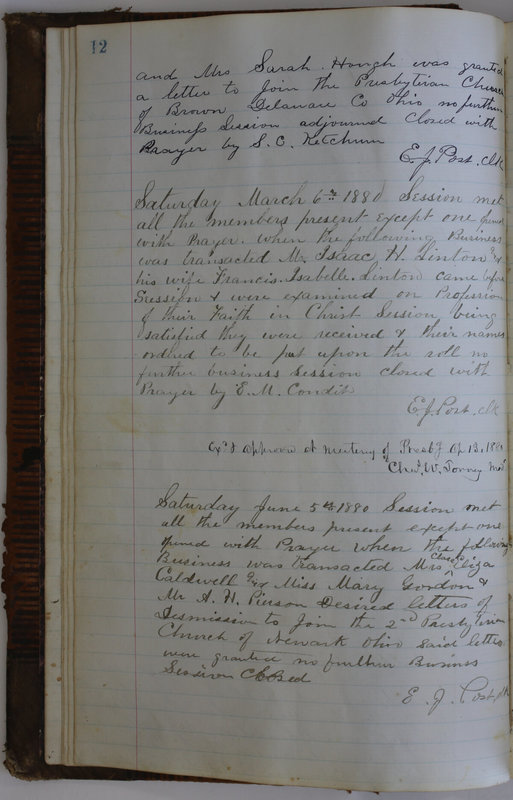 12
and Mrs Sarah Hough was granted
a letter to Join the Presbyterian Church
of Brown Delaware Co Ohio no further
Business Session adjourned Closed with
Prayer by S. C. Ketchum
E. J. Post. Clk
Saturday March 6th 1880 Session met
all the members present except one opened
with Prayer. when the following Business
was transacted Mr Isaac H. Linton &
his wife Francis. Isabelle Linton came before
Session & were examined on Profession
of their Faith in Christ Session being
satisfied they were received & their names
ordred to be put upon the roll no
further business Session closed with
Prayer by E. M. Condit
E. J. Post. clk
Exd & approved at meeting of Presby Ap 13, 1880
Chas. W. Torrey Modr
Saturday June 5th 1880 Session met
all the members present except one
opened with Prayer when the following
Business was transacted Mrs Eliza
Caldwell & Miss Mary Gordon &
Mr A. H. Pierson Desired letters of
Dismission to Join the 2nd Presbyterian
Church of Newark Ohio said letters
were granted no further Business
Session Closed
E. J. Post clk